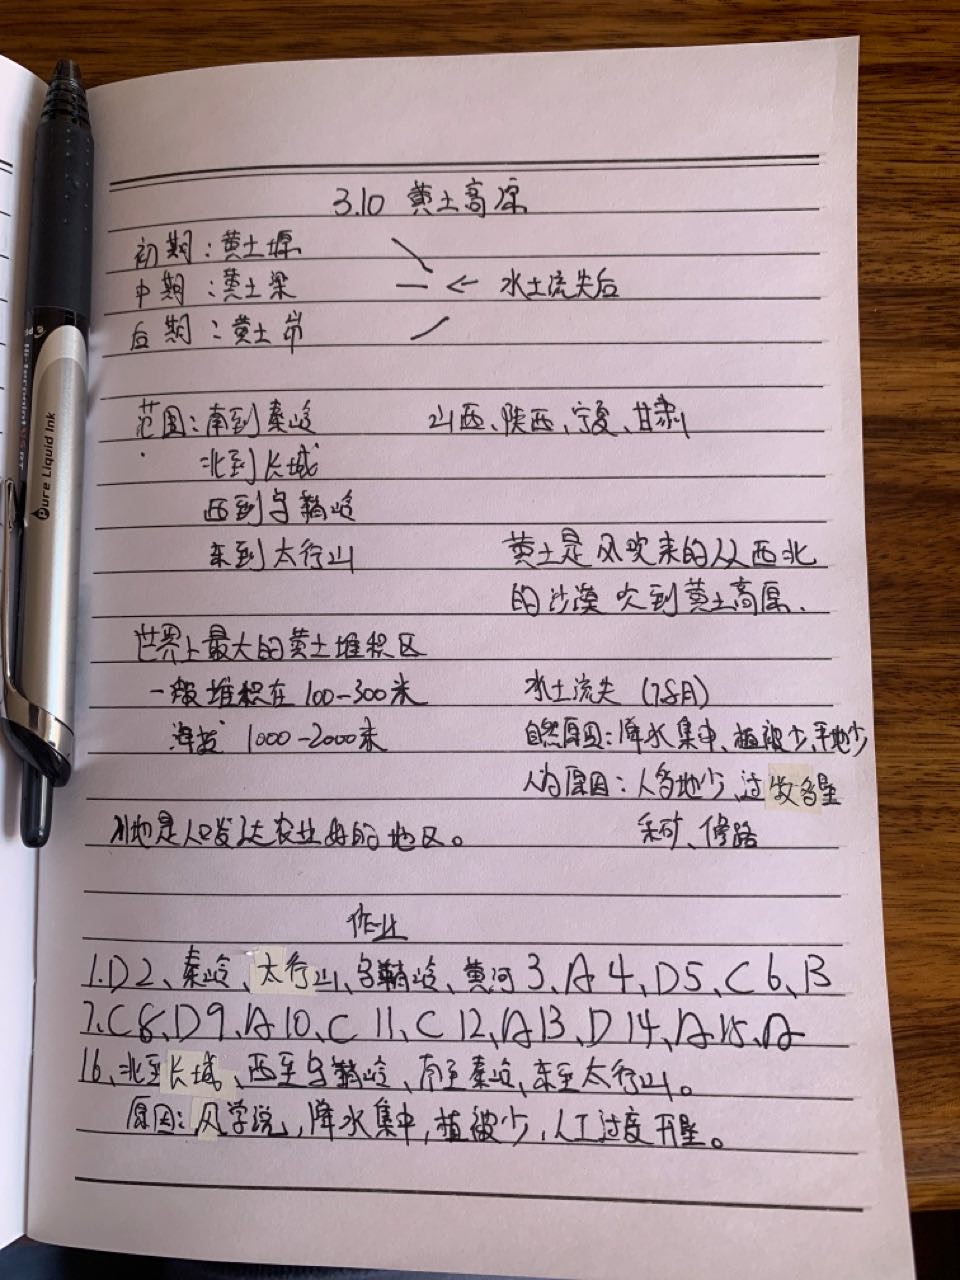 3.10 黄土高原
初期：黄土塬
中期：黄土梁 ← 水土流失后
后期：黄土峁
范围：南到秦岭 山西、陕西、宁夏、甘肃
北到长城
西到乌鞘岭
东到太行山 黄土是风吹来的从西北
的沙漠吹到黄土高原.
世界上最大的黄土堆积区
一般堆积在100-300米 水土流失(7.8月)
海拔 1000-2000米 自然原因：降水集中、植被少、平地少
人为原因：人多地少、过牧多垦
川地是人口发达农业好的地区。 采矿、修路
作业
1.D 2、秦岭、太行山、乌鞘岭、黄河 3、A 4、D 5、C 6、B
7、C 8、D 9、A 10、C 11、C 12、A 13、D 14、A 15、A
16、北至长城、西至乌鞘岭、南至秦岭、东至太行山。
原因：风学说，降水集中，植被少，人工过度开垦。
Pure Liquid Ink